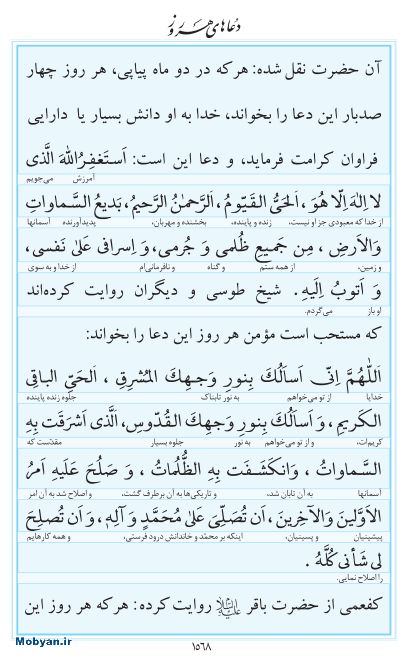 دعاهای هر روز
آن حضرت نقل شده: هرکه در دو ماه پیاپی، هر روز چهار
صدبار این دعا را بخواند، خدا به او دانش بسیار یا دارایی
فراوان کرامت فرماید، و دعا این است: اَستَغفِرُاللهَ الَّذی
آمرزش می‌جویم
لا اِلهَ اِلّا هُوَ، اَلحَیُّ القَیّومُ، اَلرَّحمٰنُ الرَّحیمُ، بَدیعُ السَّماواتِ
از خدا که معبودی جز او نیست، زنده و پاینده، بخشنده و مهربان، پدیدآورنده آسمانها
وَالاَرضِ، مِن جَمیعِ ظُلمی وَ جُرمی، وَ اِسرافی عَلیٰ نَفسی،
و زمین، از همه ستم و گناه و نافرمانی‌ام از خدا و به سوی
وَ اَتوبُ اِلَیهِ. شیخ طوسی و دیگران روایت کرده‌اند
او باز می‌گردم.
که مستحب است مؤمن هر روز این دعا را بخواند:
اَللّٰهُمَّ اِنّی اَساَلُکَ بِنورِ وَجهِکَ المُشرِقِ، اَلحَیِّ الباقِی
خدایا از تو می‌خواهم به نور تابناک جلوه زنده پاینده
الکَریمِ، وَ اَساَلُکَ بِنورِ وَجهِکَ القُدّوسِ، اَلَّذی اَشرَقَت بِهِ
کریم‌ات، و از تو می‌خواهم به نور جلوه بسیار مقدّست که
السَّماواتُ، وَانکَشَفَت بِهِ الظُّلُماتُ، وَ صَلُحَ عَلَیهِ اَمرُ
آسمانها به آن تابان شد، و تاریکی‌ها به آن برطرف گشت، و اصلاح شد به آن امر
الاَوَّلینَ وَالآخِرینَ، اَن تُصَلِّیَ عَلیٰ مُحَمَّدٍ وَ آلِهِ، وَ اَن تُصلِحَ
پیشینیان و پسینیان، اینکه بر محمّد و خاندانش درود فرستی، و همه کارهایم
لی شَأنی کُلَّهُ.
را اصلاح نمایی.
کفعمی از حضرت باقر علیه‌السلام روایت کرده: هرکه هر روز این
۱۵۶۸
Mobyan.ir